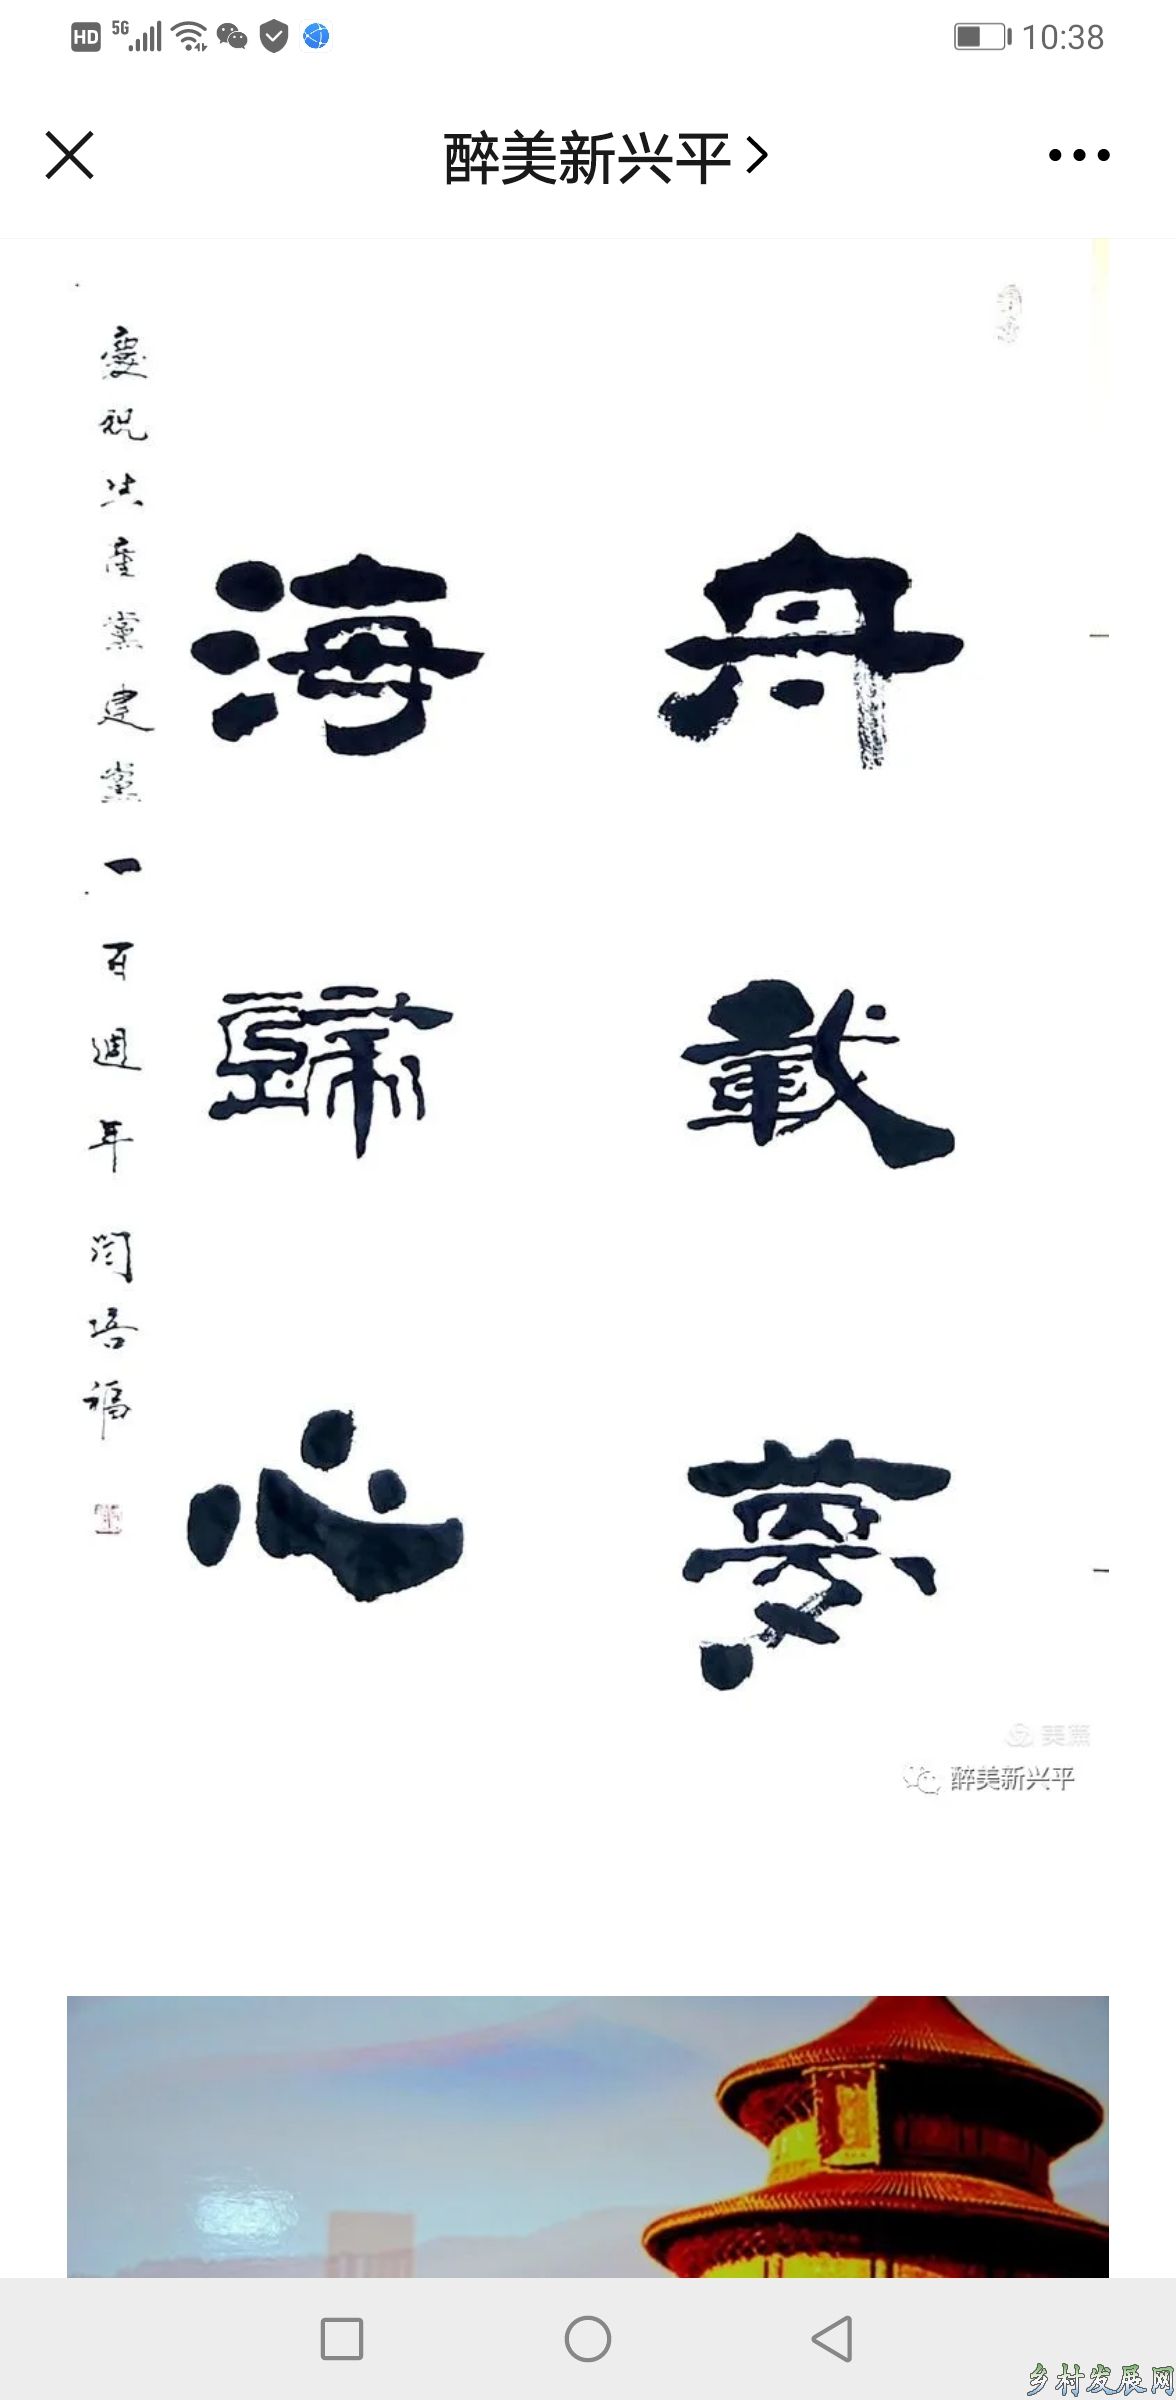 HD 5G 10:38
醉美新兴平
舟載夢
海歸心
慶祝共產黨建黨一百週年 閆培福
美篇
醉美新兴平
乡村发展网